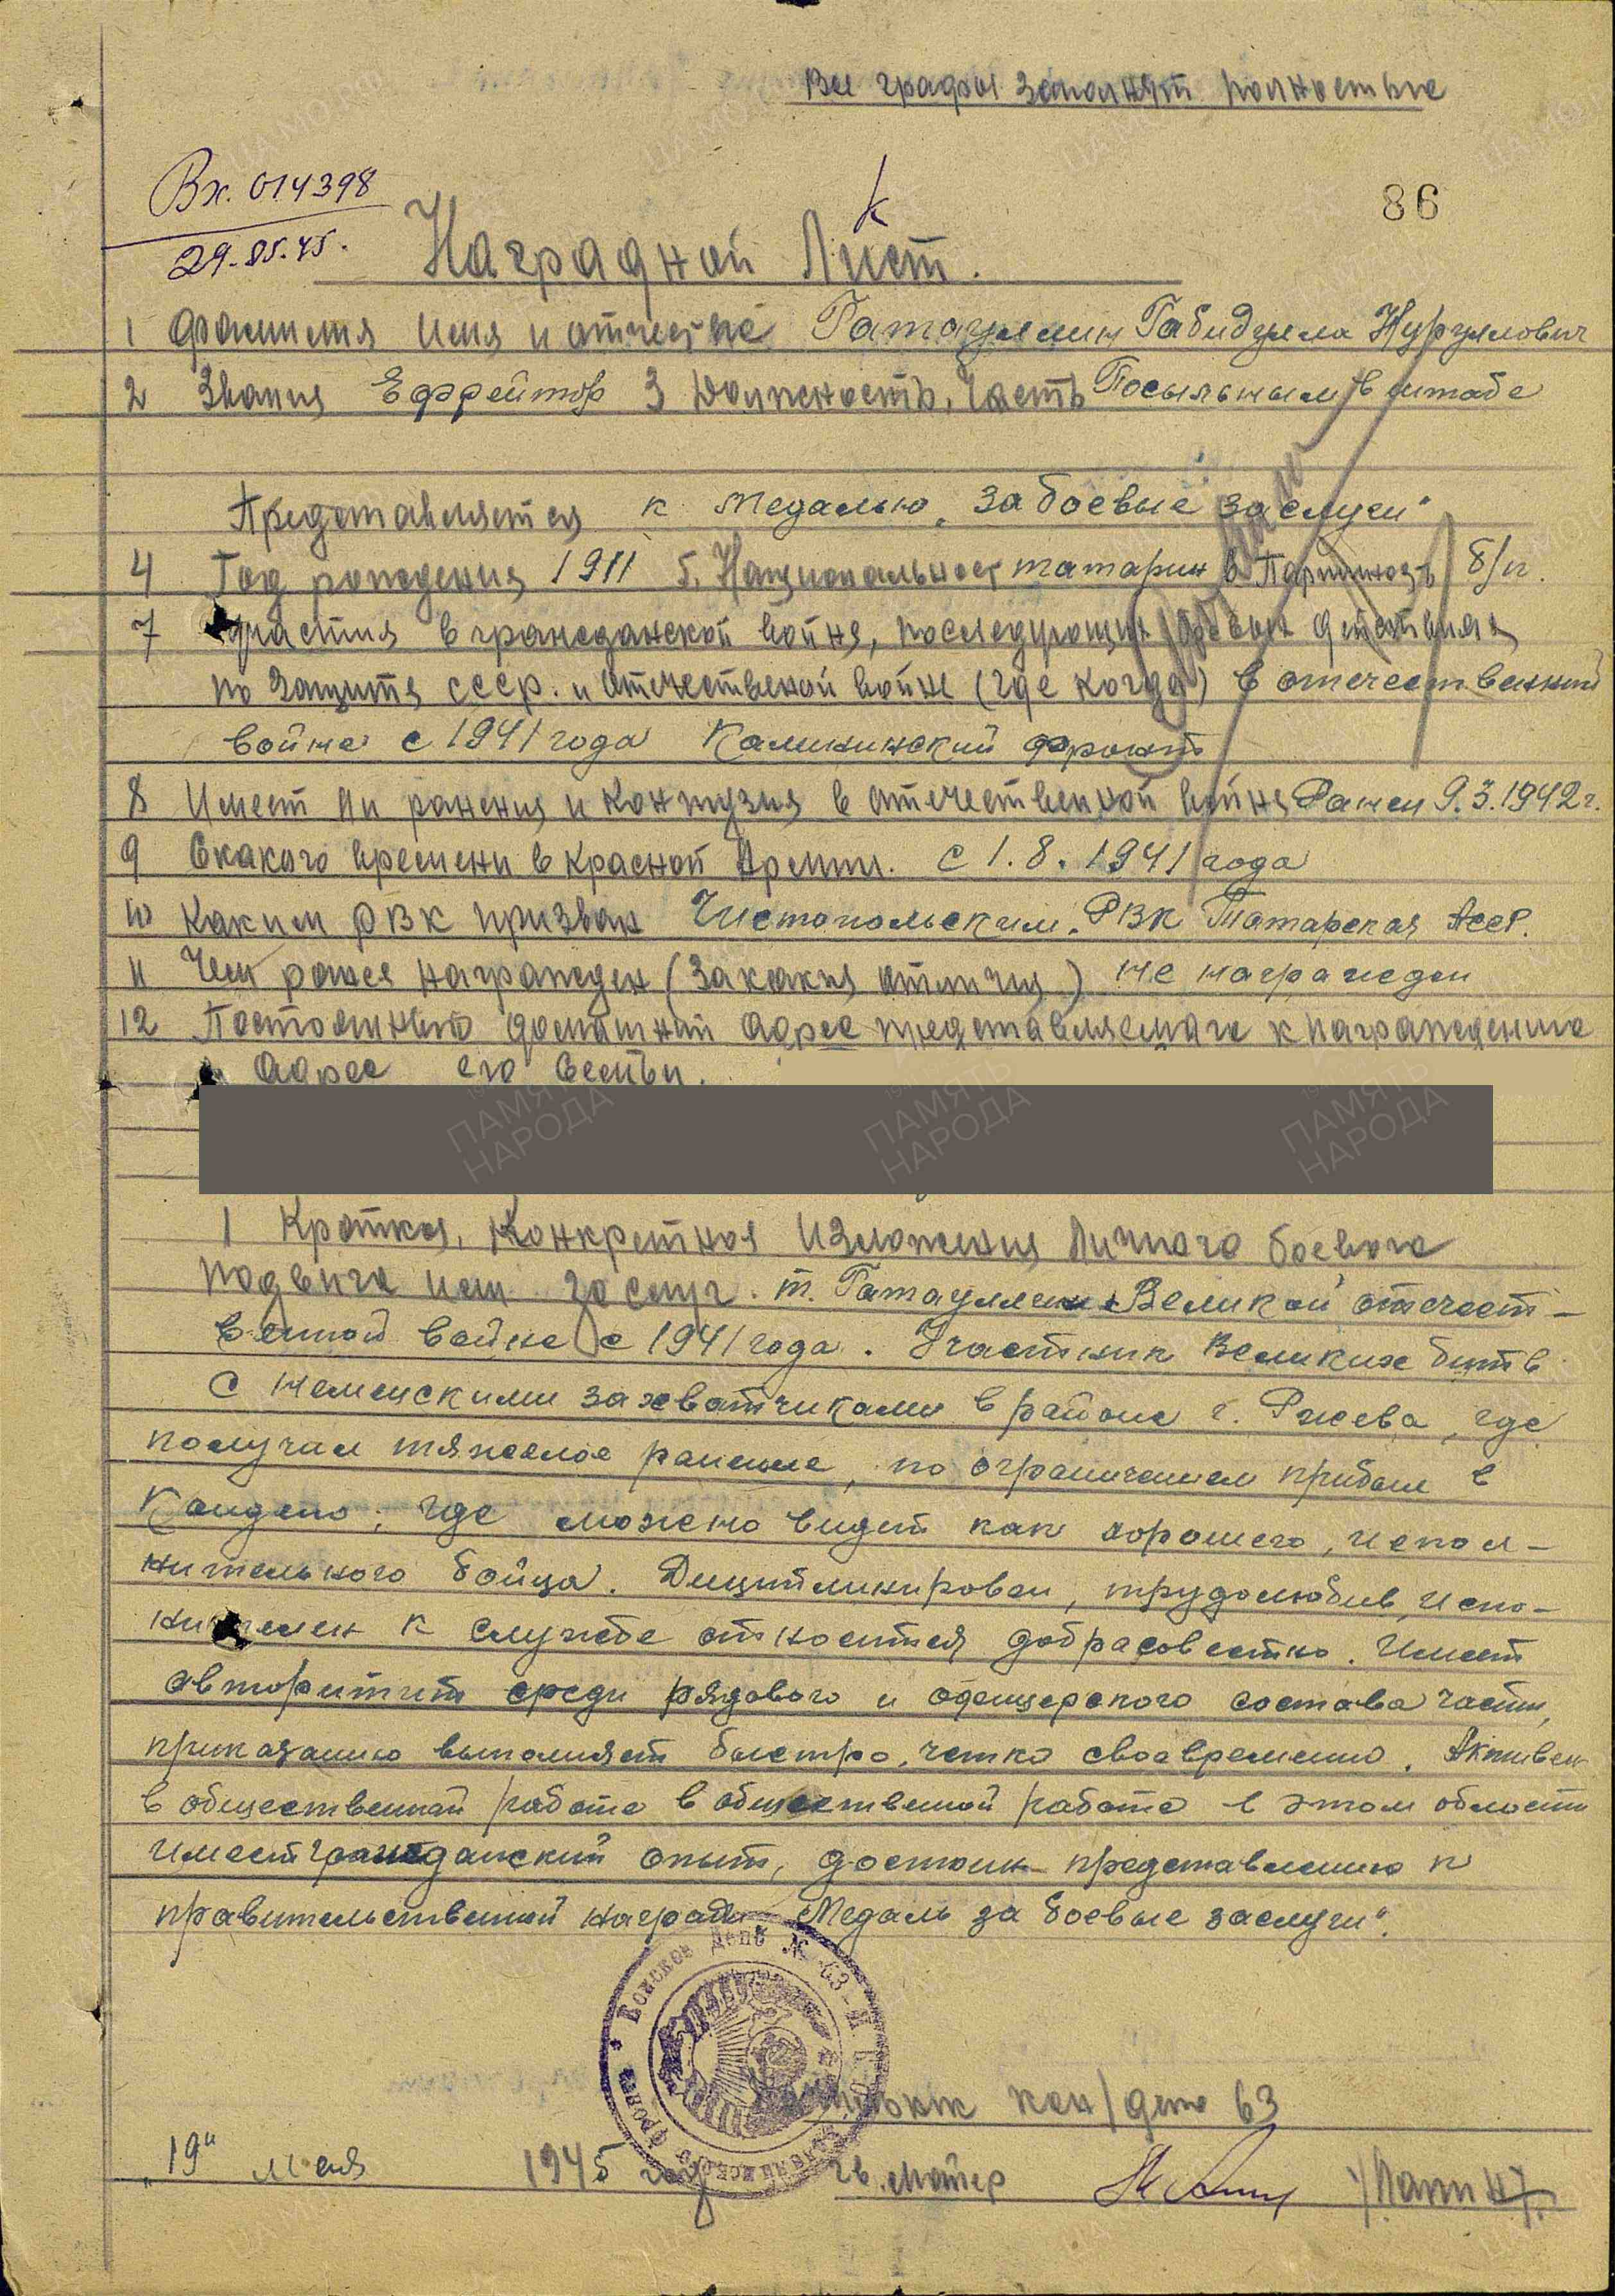 Все графы заполнят полностью
Вх. 014398
29.05.45.
86
Наградной Лист.
1 Фамилия Имя и отчество Гатауллин Габидулла Нургулович
2 Звания Ефрейтор 3 Должность, Часть Посыльным в штабе
Представляется к медалью "За боевые заслуги"
4 Год рождения 1911 5. Национальност татарин 6 Партийность б/п.
7 Участия в гражданской войня, последующих боевых действиях
по защитя СССР. и отечественой войне (где когда) в отечественний
война с 1941 года Калининский фронт
8 Имеет ли ранения и контузия в отечественной войня Ранен 9.3.1942 г.
9 Скакого времени в Красной Армии. с 1.8.1941 года
10 Каким РВК призван Чистопольским. РВК Татарская АССР.
11 Чем ранея награжден (За какия отличия) не награжден
12 Постоянный домашний адрес представляемаго к награждению
и адрес его семьи.
ПАМЯТЬ НАРОДА
1 Краткая, Конкретная изложения Личного боевого
подвига или заслуг. т. Гатауллин в Великой отечест-
венной войне с 1941 года. Участник Великих битв
с немецскими захватчиками в районе г. Ржева, где
получил тяжелое ранение, по ограничением прибыл в
Кондепо, где можно видет как хорошего, испол-
нительного бойца. Дициплинирован, трудолюбив, испо-
нителен к службе относится добрасовестно. Имеет
авторитит среди рядового и офицерского состава части,
приказанию выполняет быстро, четко своевременно. Активен
в общественной работе в общественной работе в этом области
имеет гражданский опыт, достоин представлению к
правительственной награды "Медаль за боевые заслуги".
Конское депо № 63
Начальник кон/депо 63
"19" мая 1945 год гв. Майор /Лапин/.